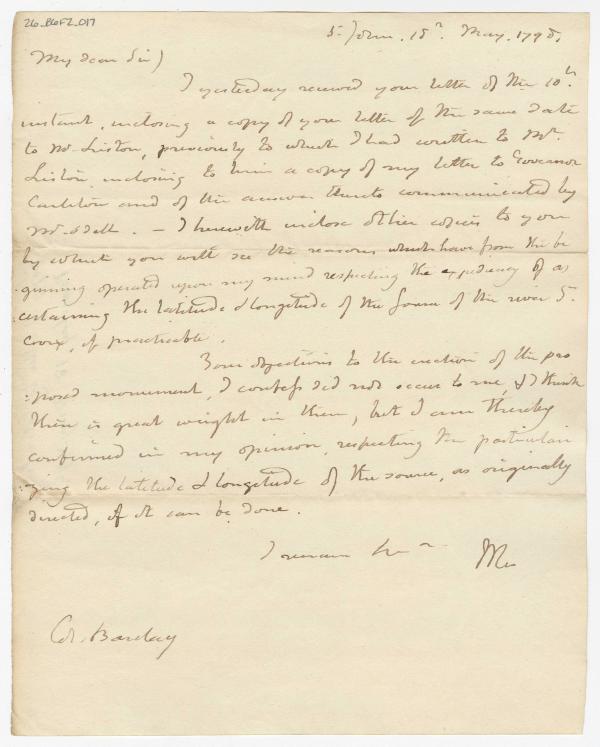 26_B6F2_017
St. John. 15th. May. 1798.
My dear Sir)
I yesterday received your letter of the 10th.
instant, inclosing a copy of your letter of the same date
to Mr. Liston, previously to which I had written to Mr.
Liston inclosing to him a copy of my letter to Governor
Carleton and of the answer thereto communicated by
Mr. Odell. — I herewith inclose other copies to you
by which you will see the reasons which have from the be
ginning operated upon my mind respecting the expediency of as
certaining the latitude & longitude of the source of the river St.
Croix, if practicable.
Your objections to the erection of the pro
:posed monument, I confess did not occur to me, & I think
there is great weight in them, but I am thereby
confirmed in my opinion, respecting the particulari
zing the latitude & longitude of the source, as originally
directed, if it can be done.
I remain
Col. Barclay